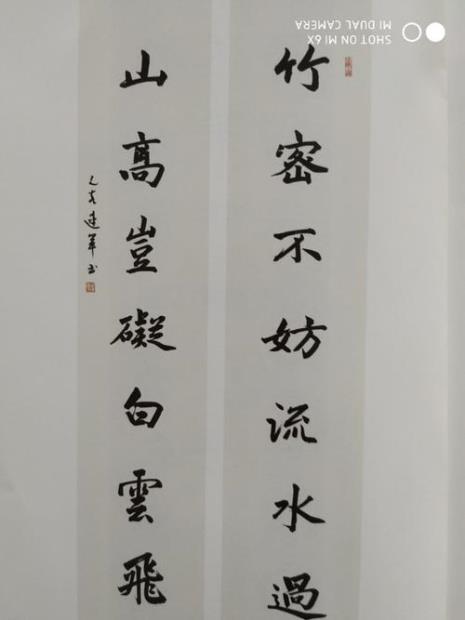 竹密不妨流水過
山高豈礙白雲飛
建軍书
SHOT ON MI 6X
MI DUAL CAMERA